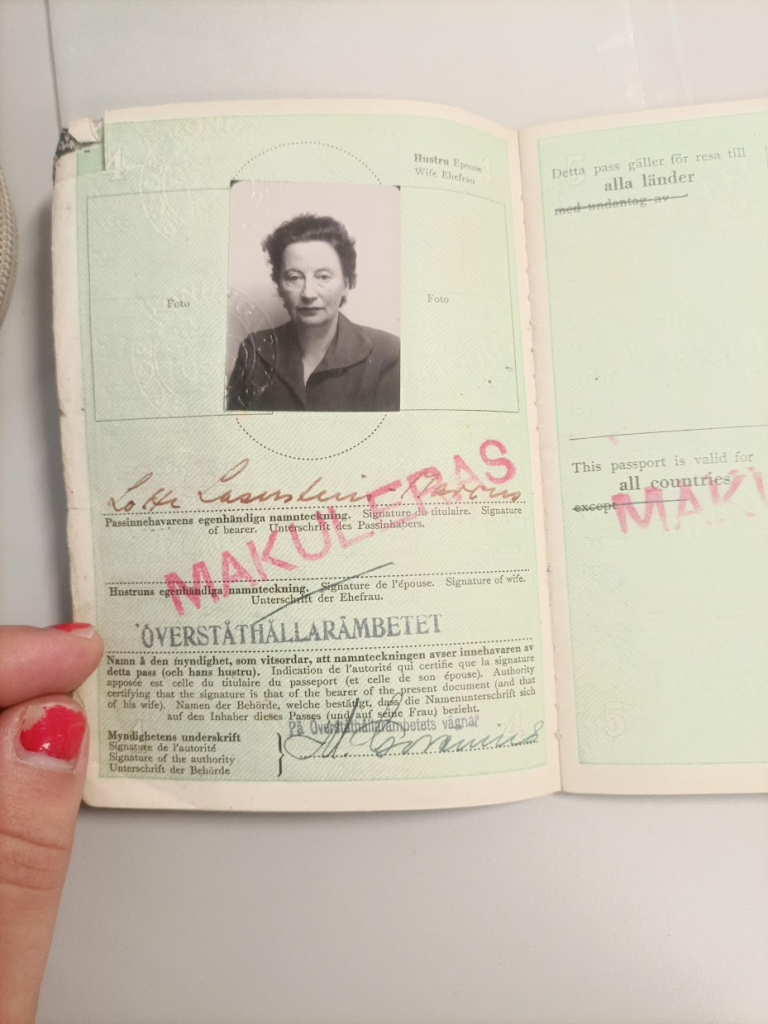 4
Hustru Epouse
Wife Ehefrau
Foto
Foto
Lotte Laserstein Marcus
MAKULERAS
Passinnehavarens egenhändiga namnteckning. Signature du titulaire. Signature
of bearer. Unterschrift des Passinhabers.
Hustruns egenhändiga namnteckning. Signature de l'épouse. Signature of wife.
Unterschrift der Ehefrau.
ÖVERSTÅTHÅLLARÄMBETET
Namn å den myndighet, som vitsordar, att namnteckningen avser innehavaren av
detta pass (och hans hustru). Indication de l'autorité qui certifie que la signature
apposée est celle du titulaire du passeport (et celle de son épouse). Authority
certifying that the signature is that of the bearer of the present document (and that
of his wife). Namen der Behörde, welche bestätigt, dass die Namenunterschrift sich
auf den Inhaber dieses Passes (und auf seine Frau) bezieht.
På Överståthållarämbetets vägnar
Myndighetens underskrift
Signature de l'autorité
Signature of the authority
Unterschrift der Behörde
Detta pass gäller för resa till
alla länder
med undantag av
This passport is valid for
all countries
except
MAKU